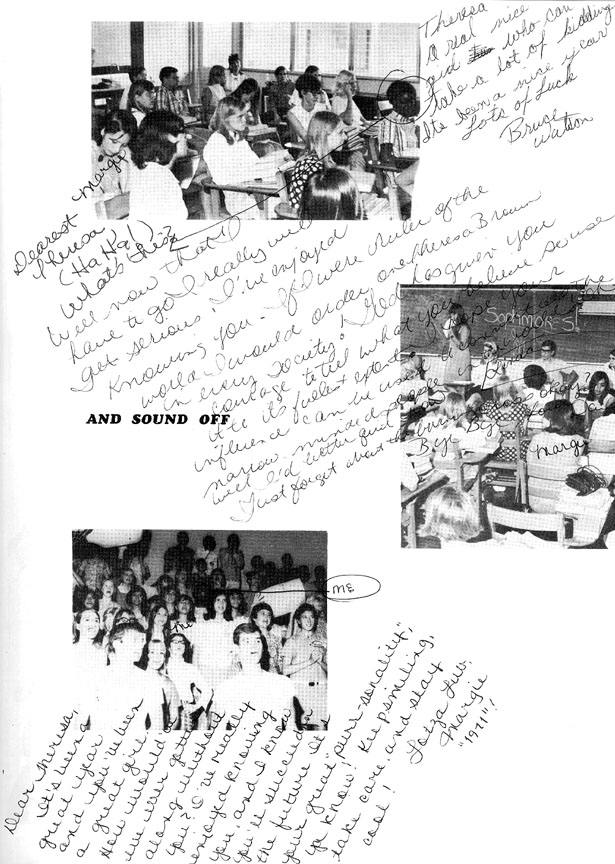 Theresa
a real nice
gid who can
take a lot of kidding
Its been a nice year
Lots of Luck
Bruce
Watson
Margie
Dearest
Theresa
(Ha Ha!)
What's this?
Well now that I
have to go I really will
get serious. I've enjoyed
Knowing you - If I were ruler of the
world I would order one Theresa Brown
in every society! God has given you
courage to tell what you believe so use
it to its fullest extent. I hope your
influence can be used
narrow minded people
well I'd better quit
Just forget about the
Bye Bye
SOPHMOR-S!
Margie
AND SOUND OFF
ME
Dear Theresa,
It's been a
great year
and you've been
a great girl.
How would
we ever get
along without
you? I've really
enjoyed knowing
you and I know
you'll succeed in
the future. It's
your great "purr-sonality",
ya know! Keep smiling,
take care, and stay
cool!
Lotza Luv,
Margie
"1971"!